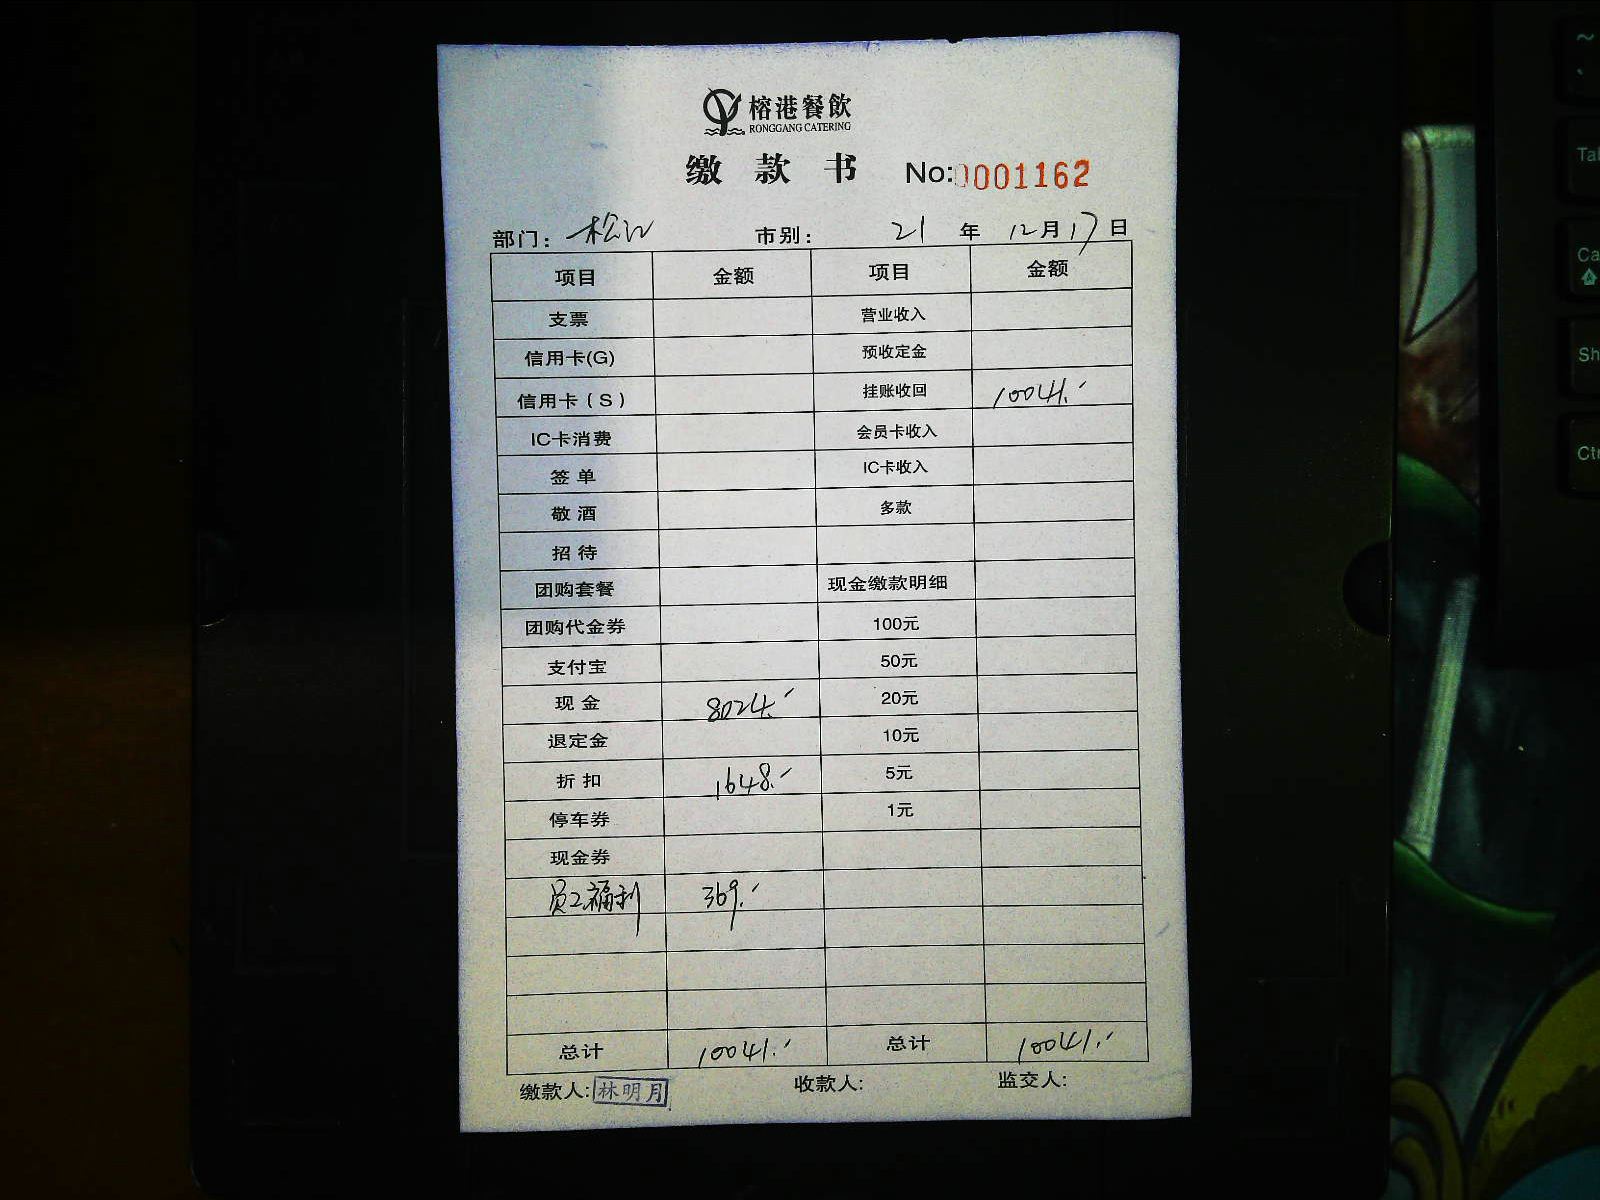 榕港餐飲
RONGGANG CATERING
缴款书 No:0001162
部门: 松江 市别: 21 年 12 月 17 日
项目 金额 项目 金额
支票 营业收入
信用卡(G) 预收定金
信用卡(S) 挂账收回 10041.-
IC卡消费 会员卡收入
签单 IC卡收入
敬酒 多款
招待
团购套餐 现金缴款明细
团购代金券 100元
支付宝 50元
现金 8024.- 20元
退定金 10元
折扣 1648.- 5元
停车券 1元
现金券
员工福利 369.-
总计 10041.- 总计 10041.-
缴款人: 林明月 收款人: 监交人:
~
`
Ta
Ca
Sh
Ct